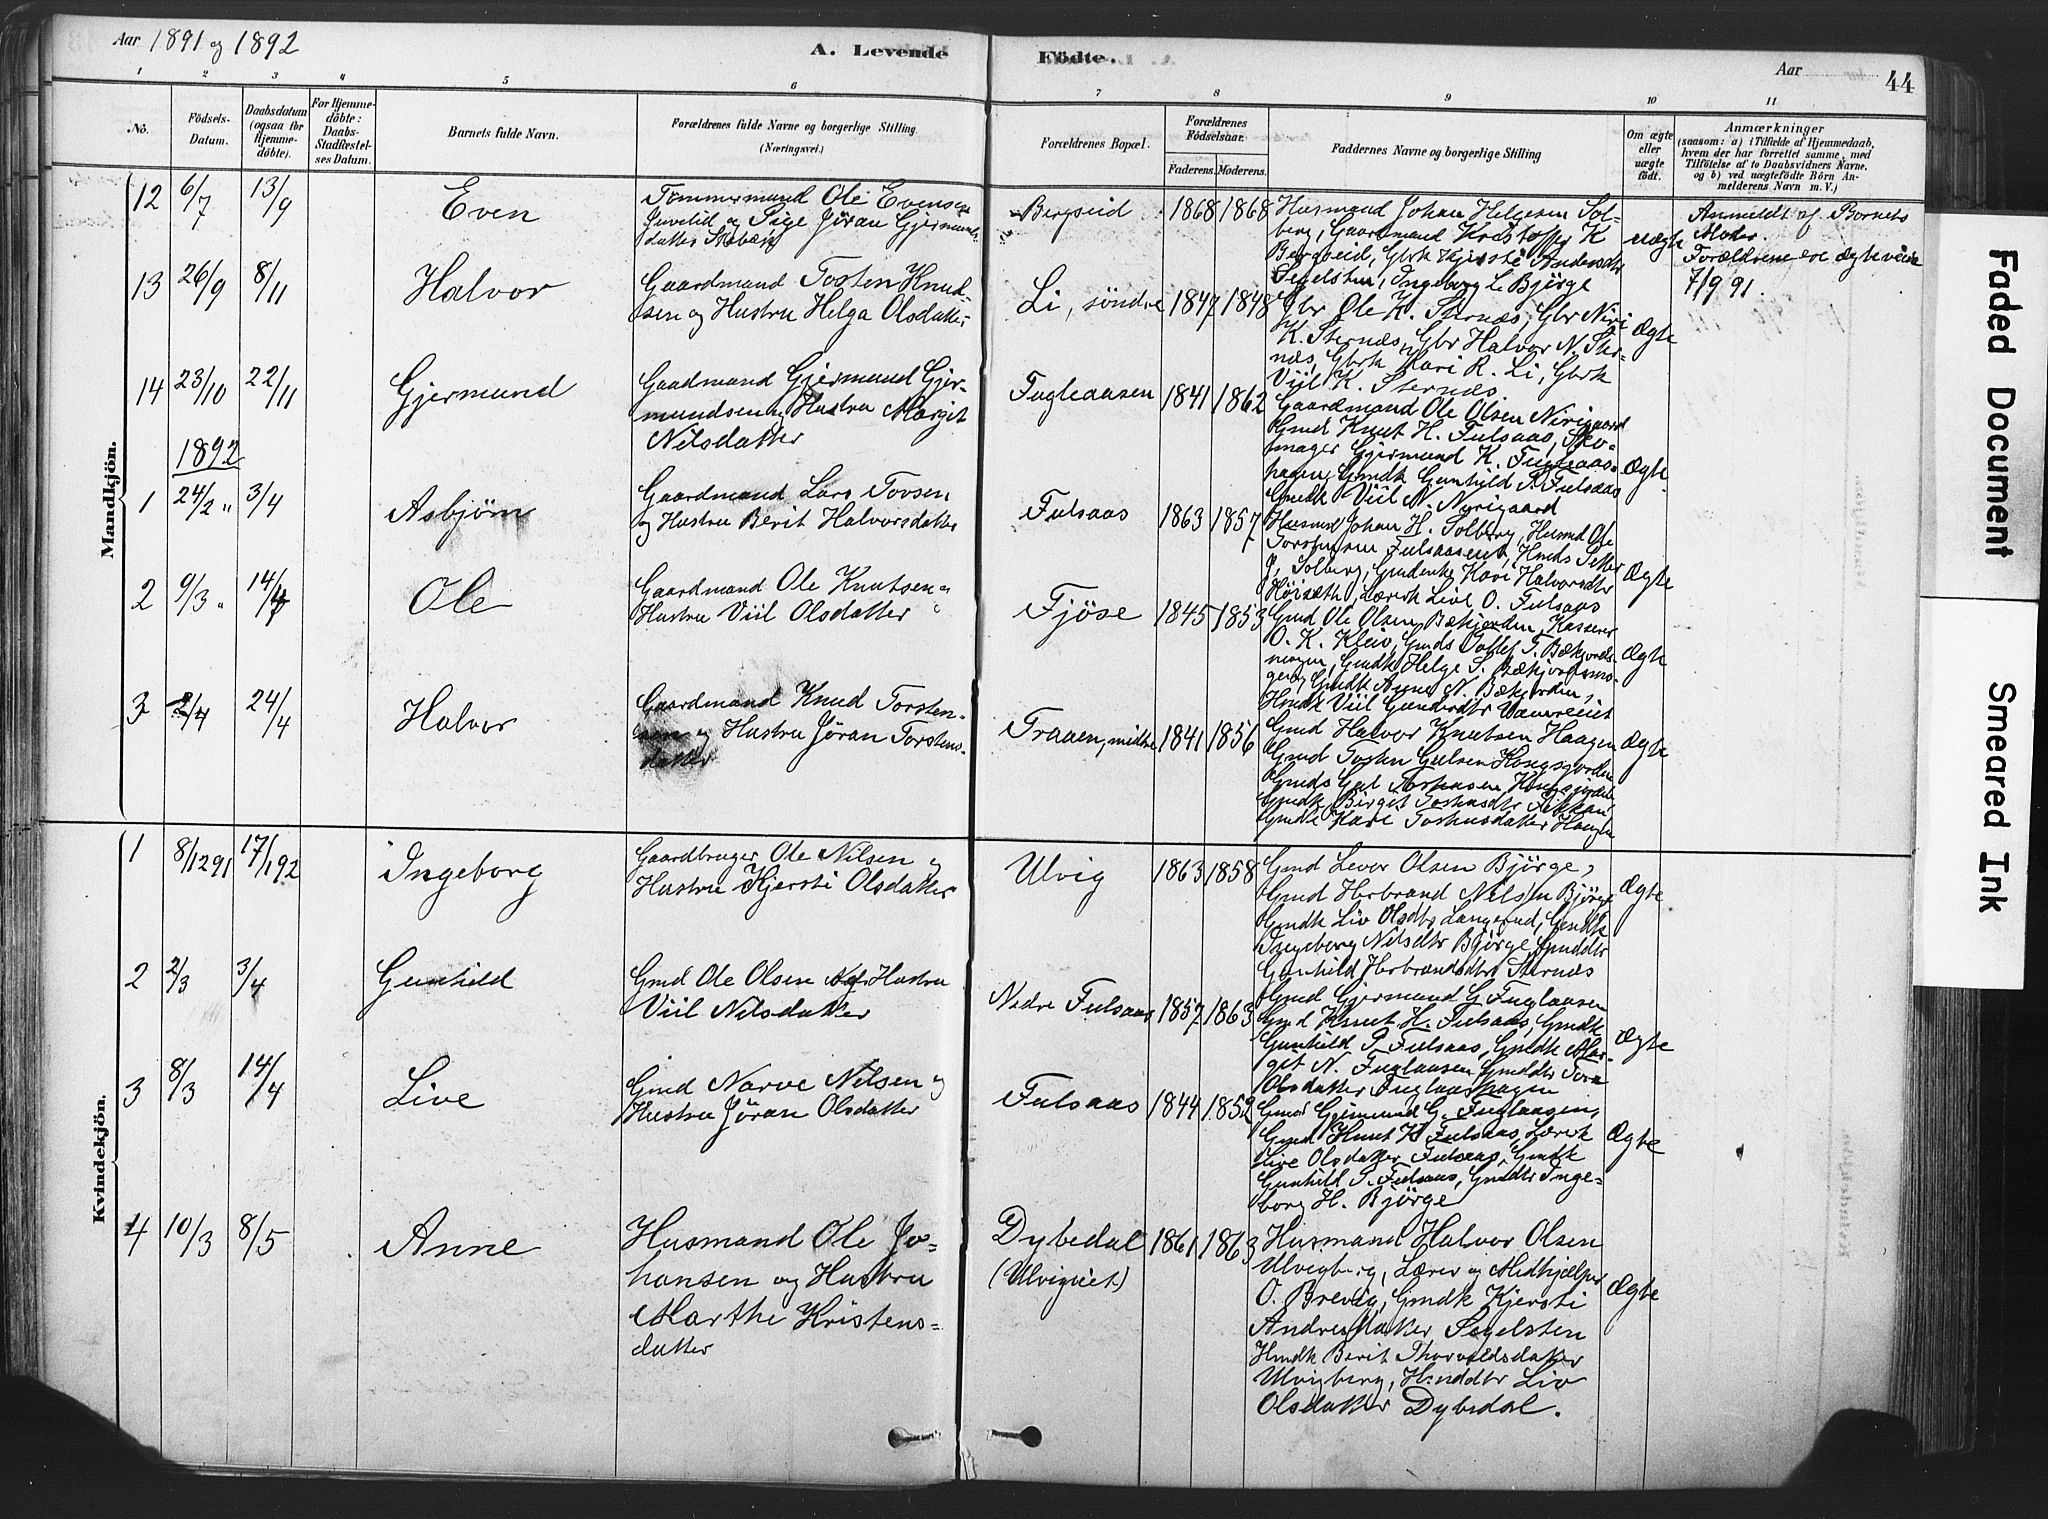 Aar 1891 og 1892
A. Levende Födte.
Aar
44
1 2 3 4 5 6 7 8 9 10 11
No.
Födsels-Datum.
Daabsdatum (ogsaa for Hjemme-döbte).
For Hjemme-döbte: Daabs-Stadfæstel-ses Datum.
Barnets fulde Navn.
Forældrenes fulde Navne og borgerlige Stilling (Næringsvei.)
Forældrenes Bopæl.
Forældrenes Födselsaar.
Faderens. Moderens.
Faddernes Navne og borgerlige Stilling
Om ægte eller uægte födt.
Anmærkninger
(saasom: a) i Tilfælde af Hjemmedaab, hvem der har forrettet samme, med Tilföielse af to Daabsvidners Navne. og b) ved uægtefödte Börn An-melderens Navn m. V.)
Mandkjön.
12 6/7 13/9 Even
Tømmermand Ole Evensen
og Pige Jöran Gjermunds-
datter
Bergseid 1868 1868
Husmand Johan Helgesen Sol-
berg, Gaardmand Kristoffer K
Bergseid, Gbrk Kjersti Andersdtr
Segelsten, Ingeborg L. Bjørge
uægte
Anmeldt af Barnets
Moder.
Forældrene ere ægteviede
7/9 91
13 26/9 8/11 Halvor
Gaardmand Tosten Knud-
sen og Hustru Helga Olsdatter
Li, søndre 1847 1848
Gbr Ole K. Sternes, Gbr Niri
K. Sternes, Gbr Halvor N. Ster-
nes, Gbrk Kari R. Li, Gbrk
Viil K. Sternes
Ægte
14 23/10 22/11 Gjermund
Gaadmand Gjermund Gjer-
mundsen og Hustru Margit
Nilsdatter
Fugleaasen 1841 1862
Gaardmand Ole Olsen Nirigaard
Gmd Knut H. Fulsaas, Sko-
mager Gjermund K. Fugleaas-
hagen, Gmdk Gunhild T. Fulsaas
Gmdk Viil N. Nyrigaard
Ægte
1892
1 24/2 " 3/4 Asbjørn
Gaardmand Lars Tovsen
og Hustru Berit Halvorsdatter
Fulsaas 1863 1857
Husmd Johan H. Solberg, Husmd Ole
Torstensen Fulsaaseiet, Hmds Petter
J. Solberg, Kari Halvorsdtr
Høisæth, Lærerk Live O. Fulsaas
Ægte
2 9/3 " 14/4 Ole
Gaardmand Ole Knutsen og
Hustru Viil Olsdatter
Fjöse 1845 1853
Gmd Ole Olsen Bækjorden, Kasserer
O. K. Kleiv, Gmds Tollef T. Bækjords-
mogen, Gmdk Helge S. Bækjordsmo-
gen, Gmdk Anne N. Bækjorden,
Hmdk Viil Gundersdtr
Ægte
3 2/4 24/4 Halvor
Gaardmand Knud Torsten-
sen og Hustru Jöran Torstens-
datter
Traaen, midtre 1841 1856
Gmd Halvor Knutsen Haagen
Gmd Tosten Gulsen Kongsjorden
Gmds Gul Tostensen Kongsjorden
Gmdk Birgit Tostensdtr
Gmdk Kari Tostensdatter Haagen
Ægte
Kvindekjön.
1 8/12 91 17/1 92 Ingeborg
Gaardbruger Ole Nilsen og
Hustru Kjersti Olsdatter
Ulvig 1863 1858
Gmd Levor Olsen Bjørge,
Gmd Herbrand Nilsen Bjørge
Gmdk Liv Olsdtr Langerud, Gmdk
Ingeborg Nilsdtr Bjørge, Gmddtr
Gunhild Herbrandsdtr Sternes
Ægte
2 2/3 3/4 Gunhild
Gmd Ole Olsen og Hustru
Viil Nilsdatter
Nedre Fulsaas 1857 1863
Gmd Gjermund G. Fuglaasen
Gmd Knut H. Fulsaas, Gmdk
Gunhild P. Fulsaas, Gmdk Mar-
git N. Fuglaasen Gmddtr Tora
Olsdatter Fuglaashagen
Ægte
3 8/3 14/4 Live
Gmd Narve Nilsen og
Hustru Jöran Olsdatter
Fulsaas 1844 1852
Gmd Gjermund G. Fuglaagen,
Gmd Knut K Fulsaas, Lærerk
Live Olsdatter Fulsaas, Gmdk
Gunhild T. Fulsaas, Gmddtr Inge-
borg H. Bjørge
Ægte
4 10/3 8/5 Anne
Husmand Ole Jo-
hansen og Hustru
Marthe Kristens-
datter
Dybedal 1861 1863
(Ulvigeiet)
Husmand Halvor Olsen
Ulvigberg, Lærer og Medhjælper
O. Brevig, Gmdk Kjersti
Andresdatter Segelsten
Hmdk Berit Thorvaldsdatter
Ulvigberg, Hmddtr Liv
Olsdatter Dybedal.
Ægte
Faded Document
Smeared Ink